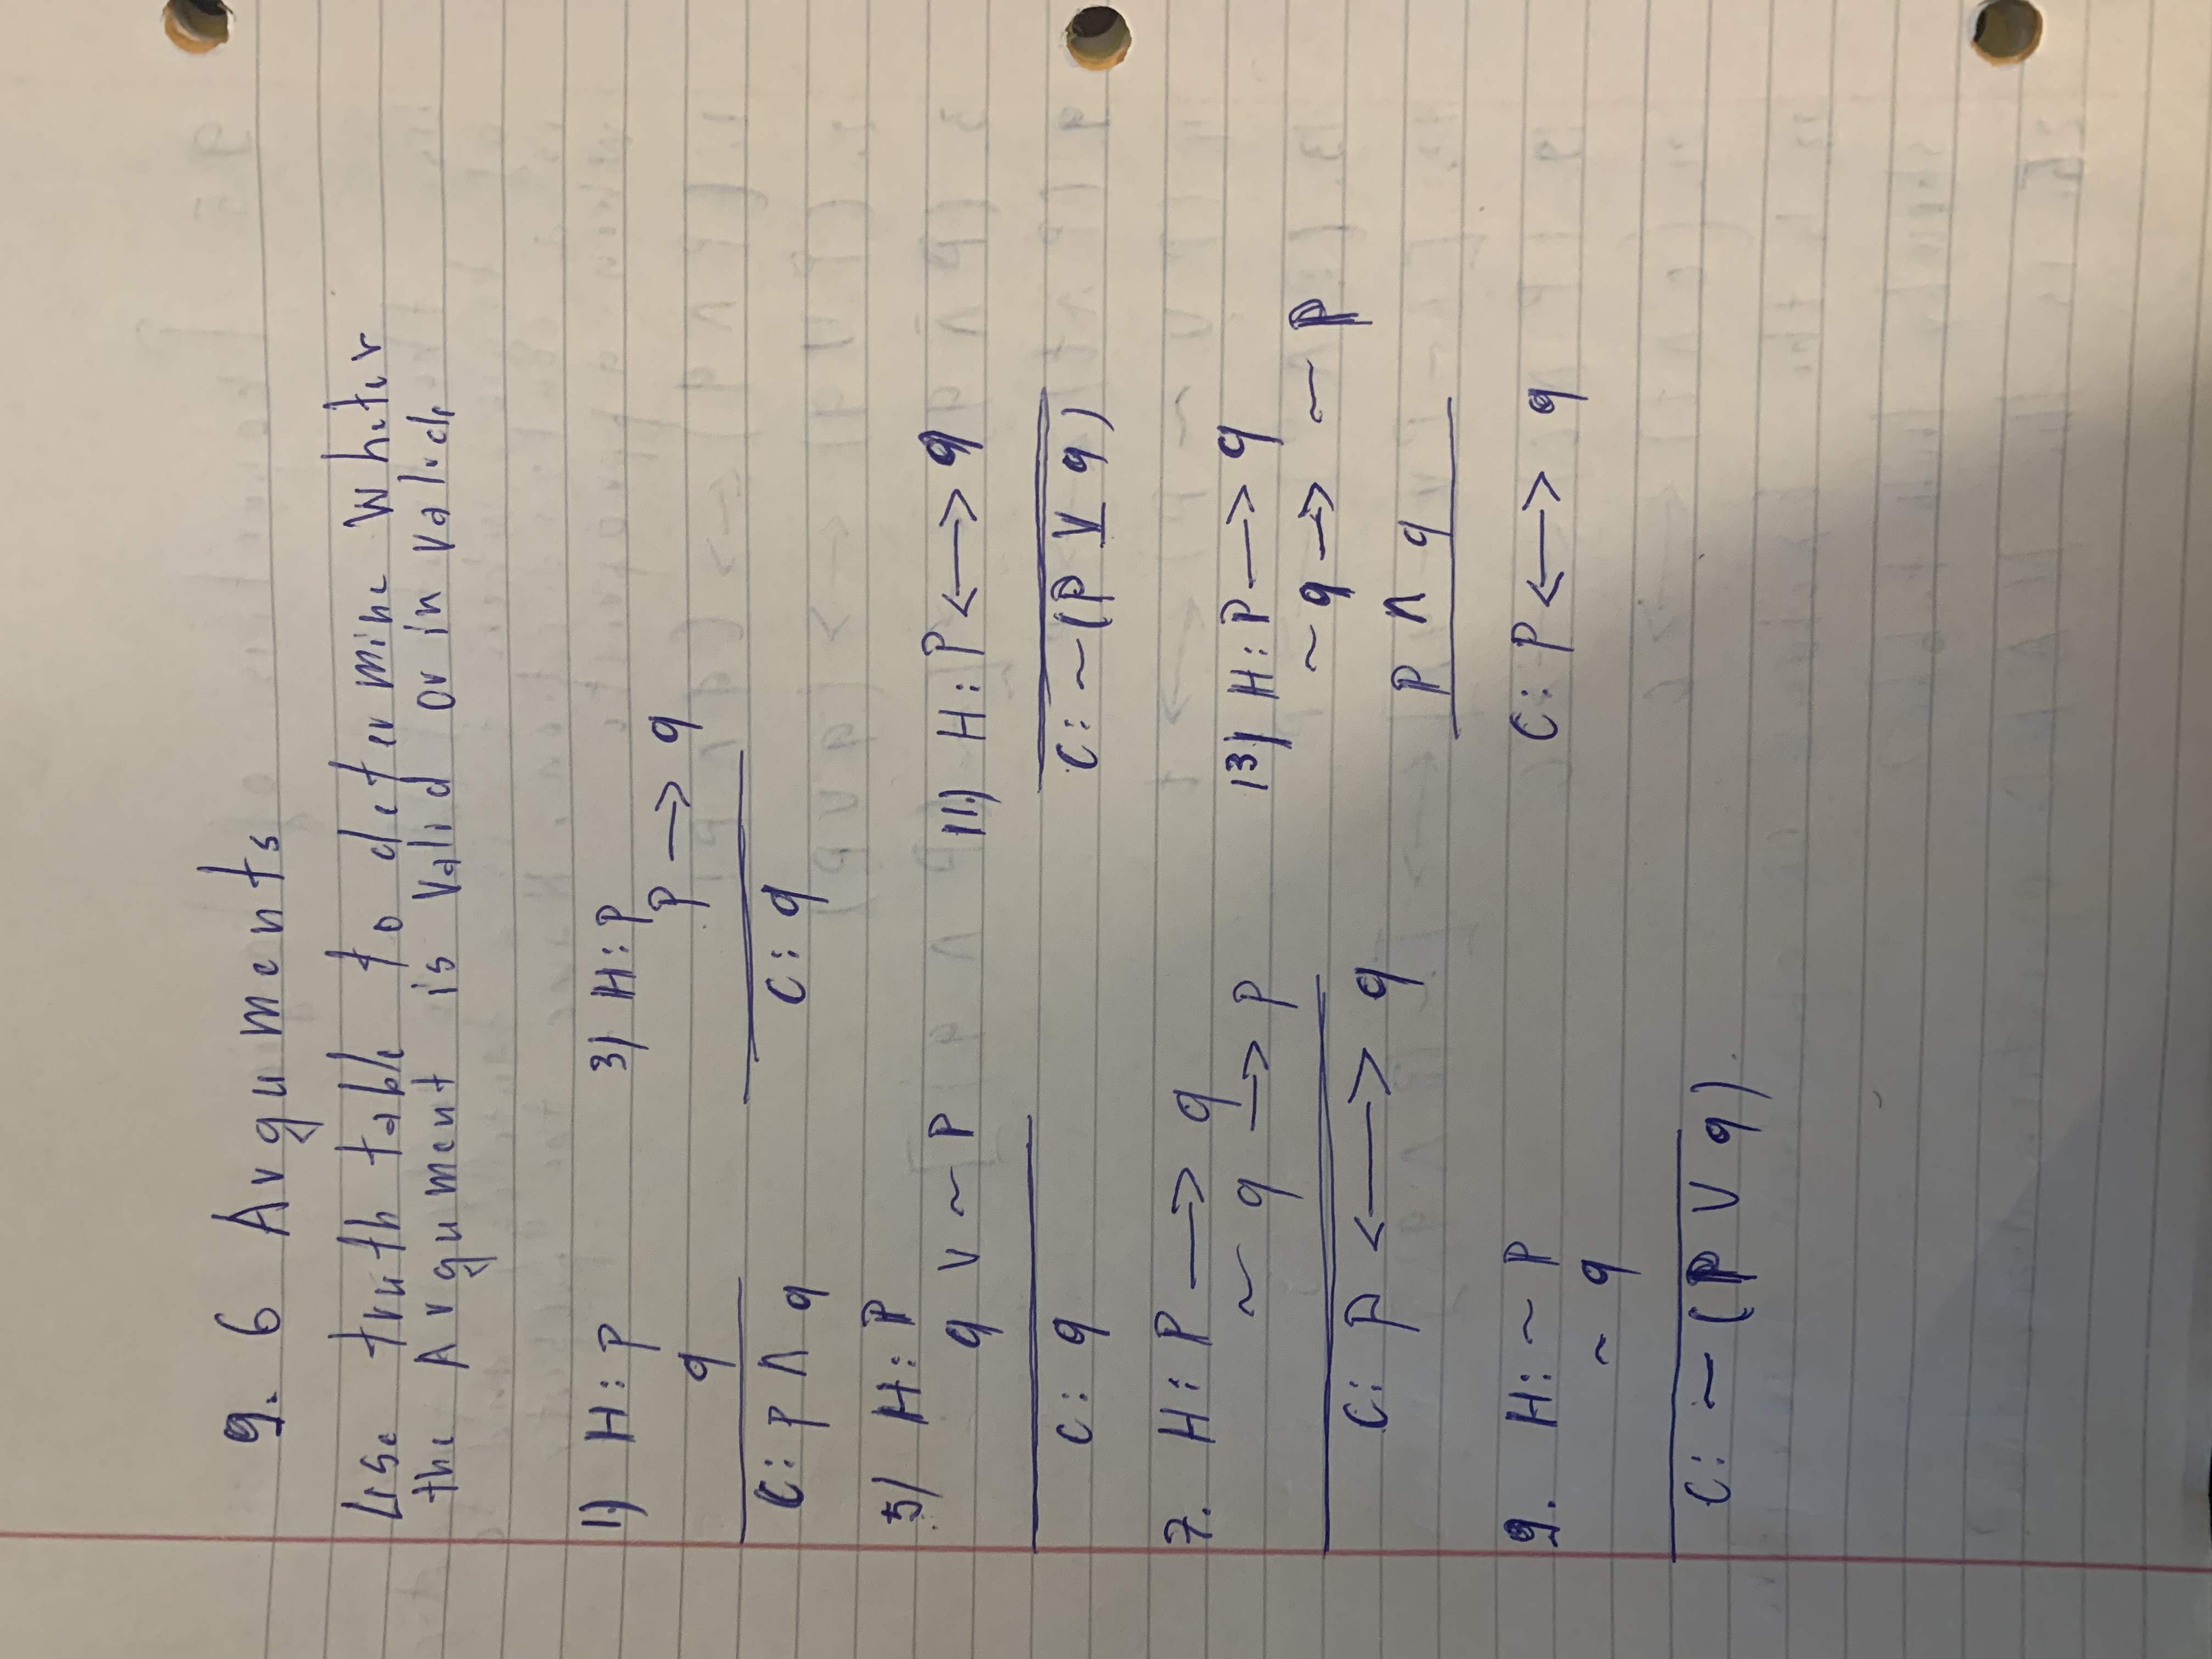 9. 6 Arguments
Use truth table to determine wheter
the Argument is valid or invalid.
1) H: P
q
C: P ∧ q
3) H: P
P → q
C: q
5) H: P
q ∨ ~ P
C: q
11) H: P ⟷ q
C: ~(P ⊻ q)
7. H: P → q
~ q → P
C: P ⟷ q
13) H: P → q
~ q → ~ P
P ∧ q
C: P ⟷ q
9. H: ~ P
~ q
C: ~ (P ∨ q)